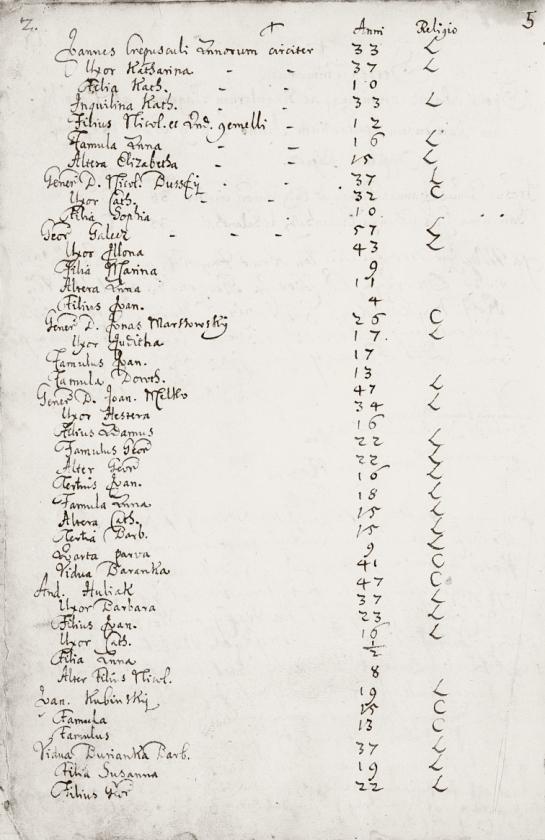 2. 5
† Anni Religio
Joannes Crepusculi Annorum circiter 33 L
Uxor Katharina - - 37 L
Filia Kath. - - 10
Inquilina Kath. - 33 L
Filius Nicol. et And. gemelli - 12
Famula Anna - 16 L
Altera Elizabetha - - 15 L
Gener D. Nicol. Bussÿ - - 37 L
Uxor Cath. - 32 C
Filia Sophia 10
Geor Galecz - - - - 57 L
Uxor Illona 43 L
Filia Marina 9
Altera Anna 11
Filius Joan. 4
Gener D. Jonas Markowskÿ 26 C
Uxor Juditha 17 L
Famulus Joan. 17
Famula Doroth. 13
Gener D. Joan. Milko 47 L
Uxor Hestera 34 L
Filius Adamus 16
Famulus Geor 22 L
Alter Geor 22 L
Tertius Joan. 16 L
Famula Anna 18 L
Altera Cath. 15 L
Tertia Barb. 15 L
Qvarta parva 9 L
Vidua Baranka 41 C
And. Huliak 47 C
Uxor Barbara 37 L
Filius Joan. 23 L
Uxor Cath. 16 L
Filia Anna ½
Alter Filius Nicol. 8
Joan. Kubinskÿ 19 L
Famula 15 C
Famulus 13 C
Vidua Burianka Barb. 37 L
Filia Susanna 19 L
Filius Geor 22 L